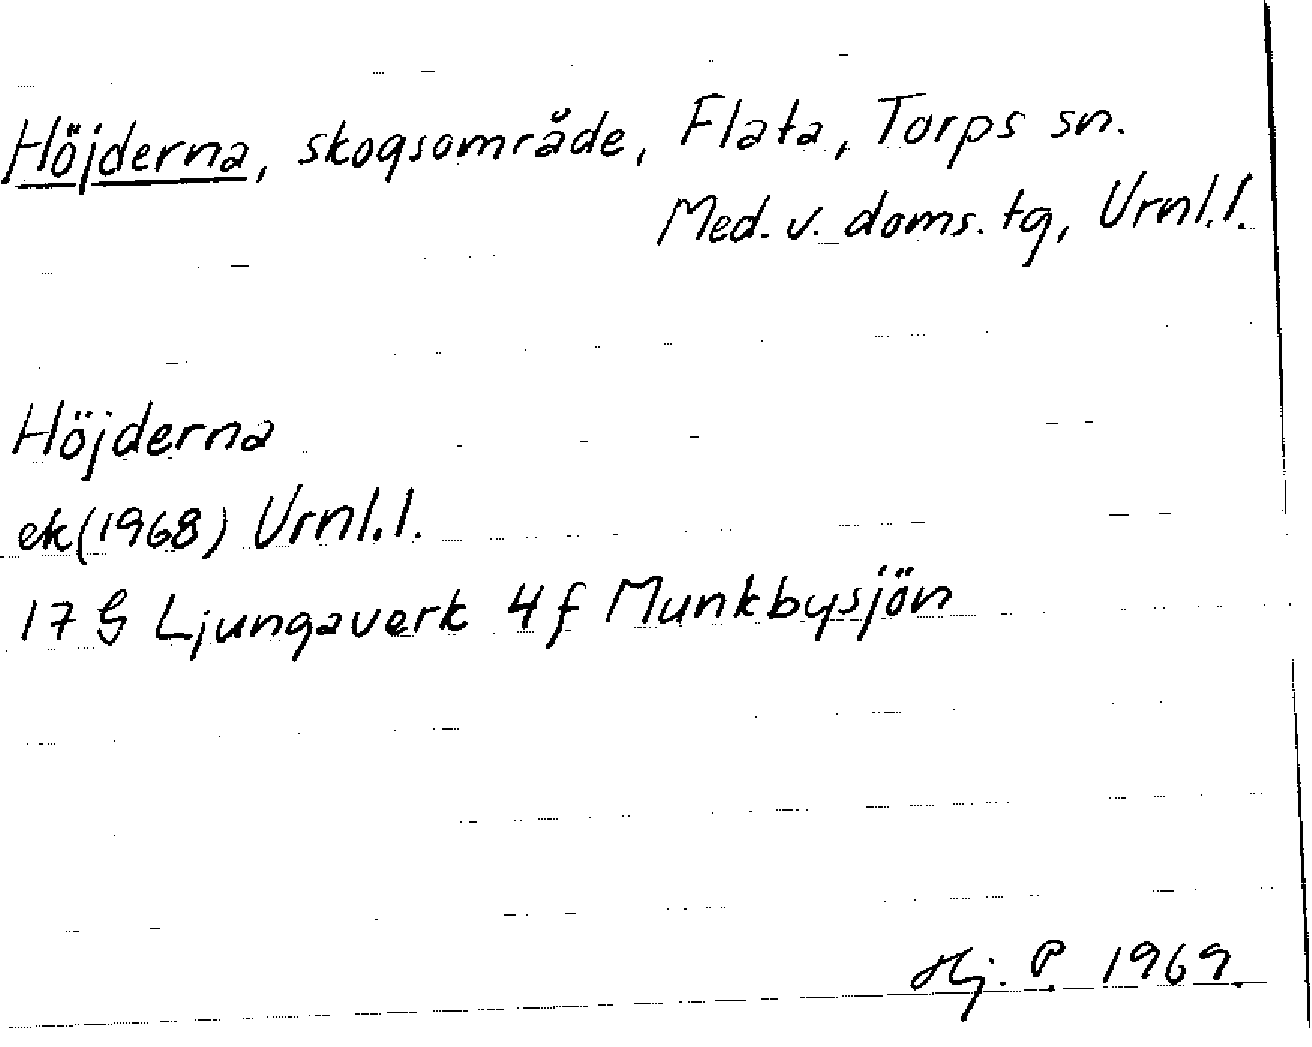 Höjderna, skogsområde, Flata, Torps sn.
Med. v. doms. tg, Vrnl.l.
Höjderna
ek(1968) Vrnl.l.
17 G Ljungaverk 4f Munkbysjön
Hj. P. 1969.